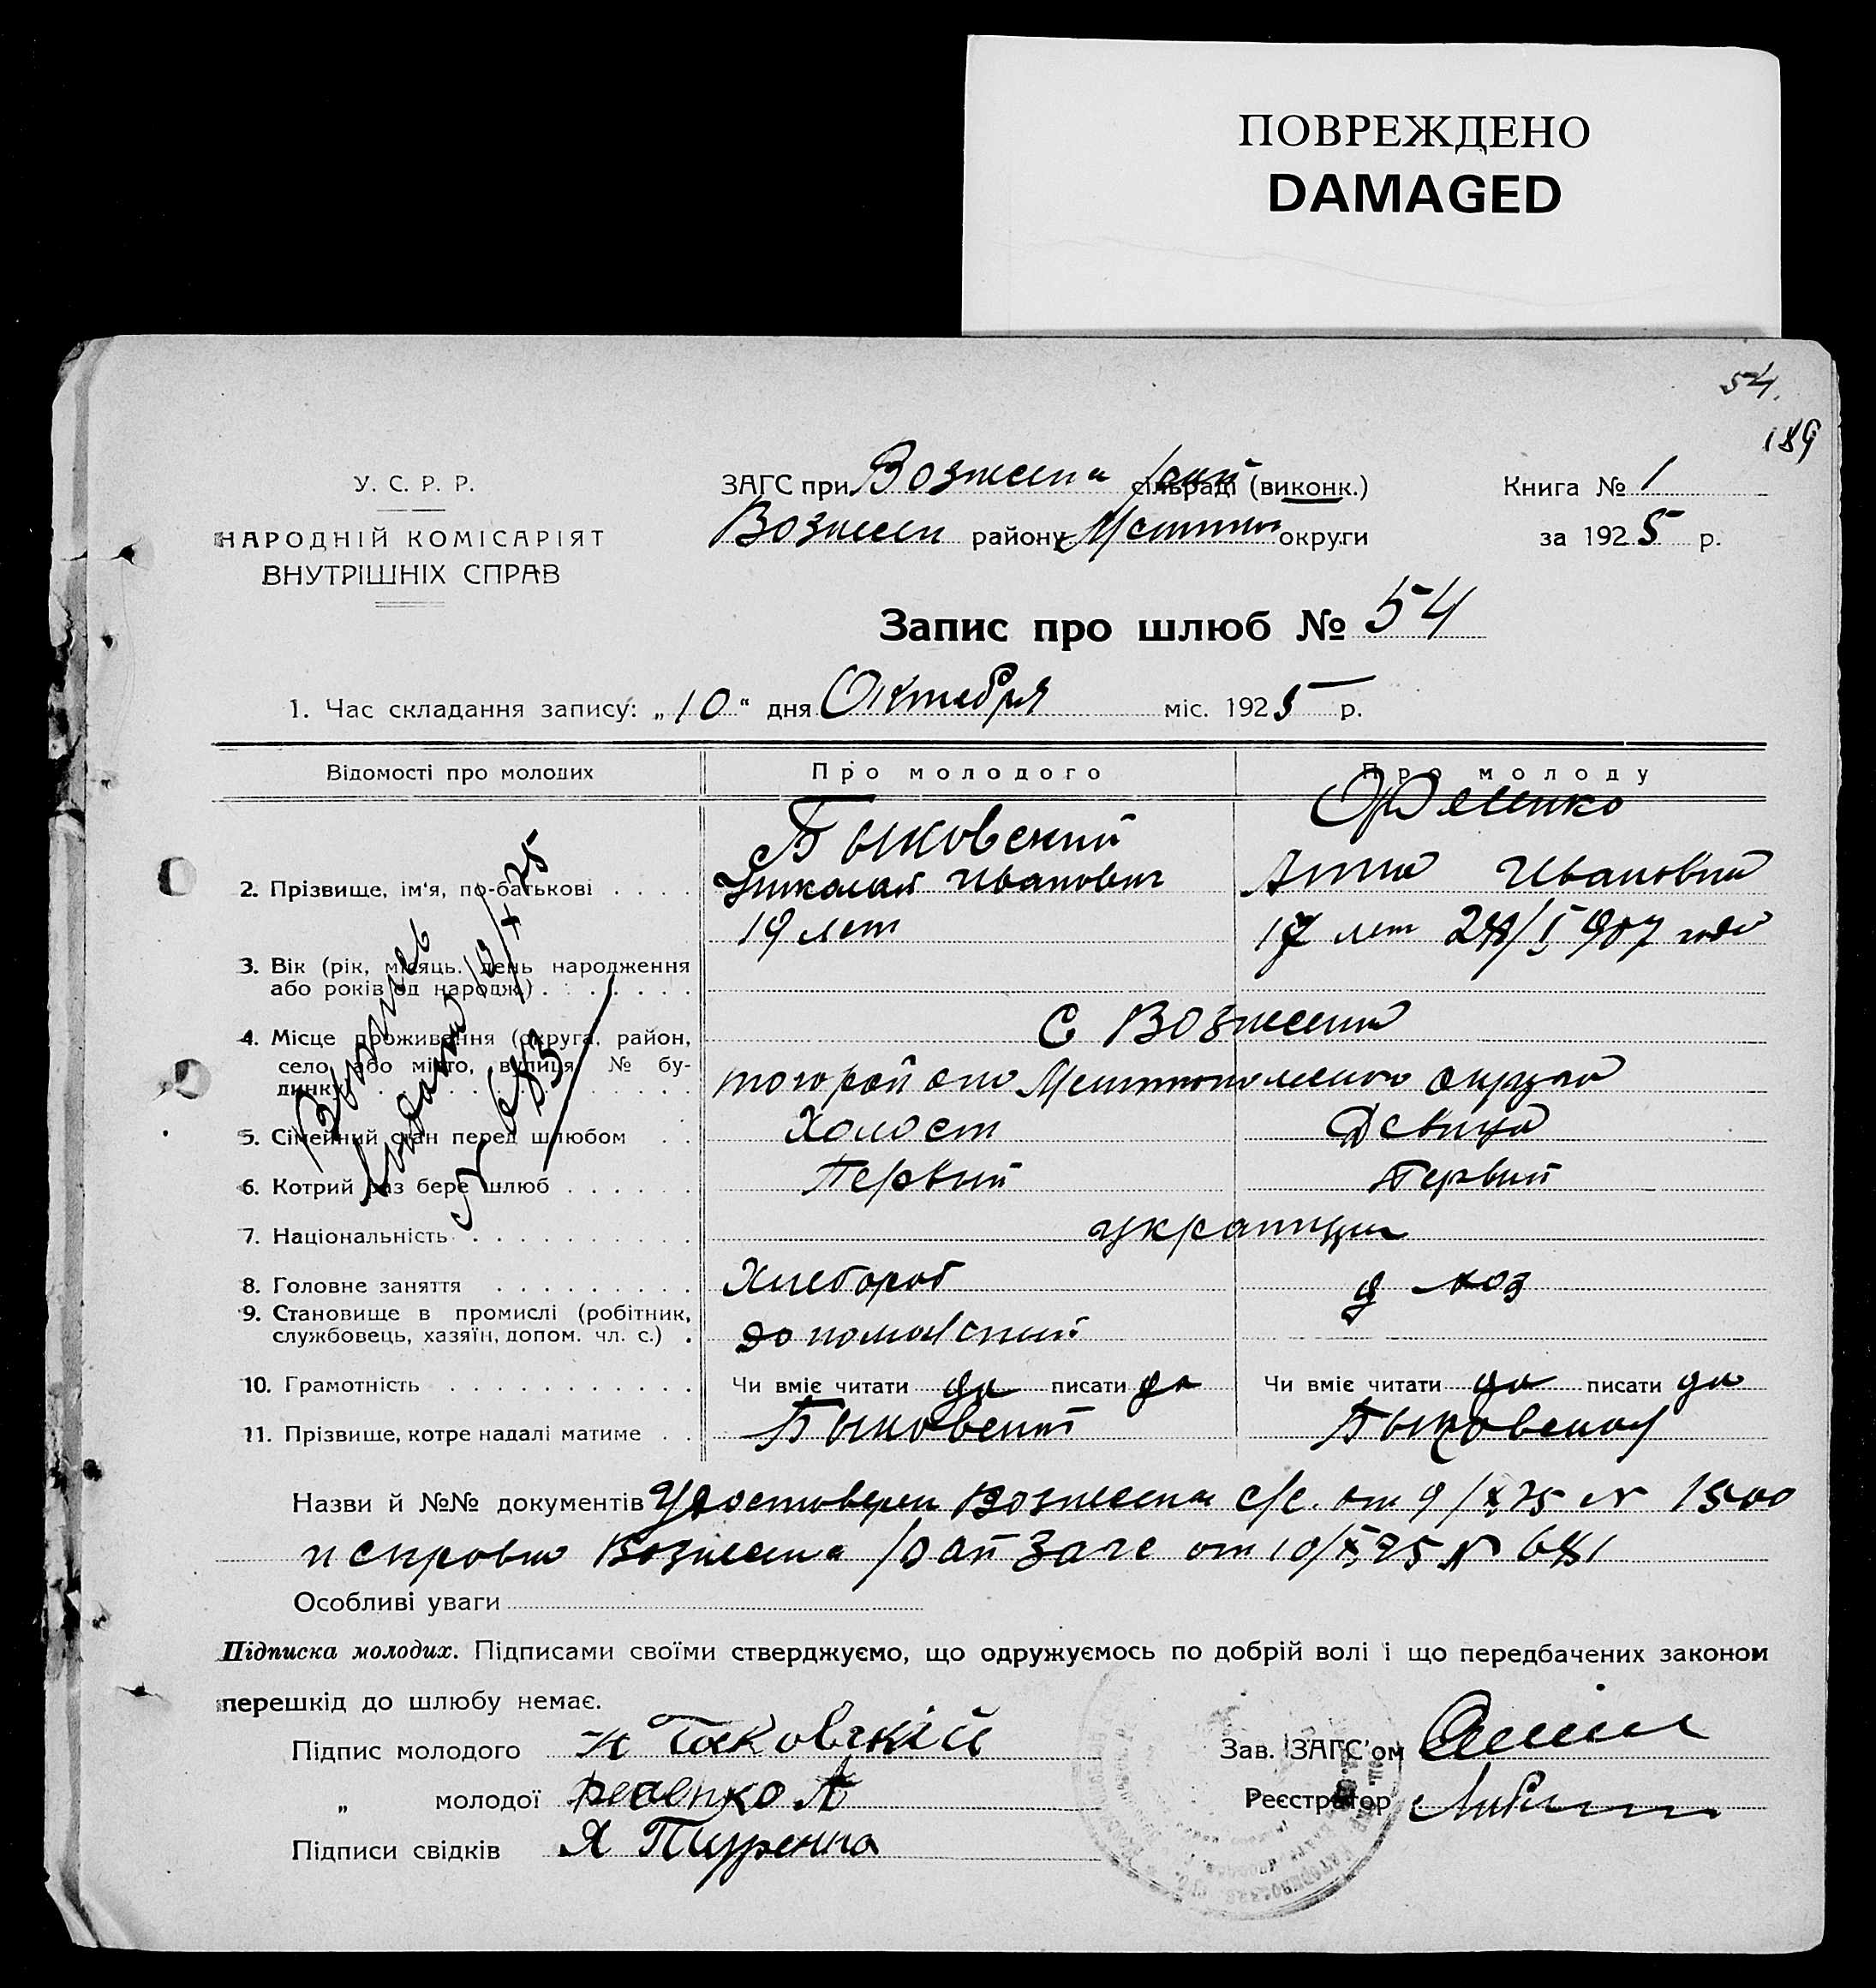 ПОВРЕЖДЕНО
DAMAGED
54.
189
У. С. Р. Р.
НАРОДНІЙ КОМІСАРІЯТ
ВНУТРІШНІХ СПРАВ
ЗАГС при Вознесен сільраді (виконк.)
Вознесен району округи
Книга № 1
за 1925 р.
Запис про шлюб № 54
1. Час складання запису: „10“ дня Октября міс. 1925 р.
Відомості про молодих Про молодого Про молоду
2. Прізвище, ім'я, по-батькові Быковский Николай Иванович Анна Ивановна
3. Вік (рік, місяць. день народження або років од народж.) 19 лет 17 лет 907 года
4. Місце проживання (округа, район, село або місто, вулиця, № бу-
динку) С Вознесен
округа
5. Сімейний стан перед шлюбом Холост Девица
6. Котрий раз бере шлюб Первый Первый
7. Національність украинцы
8. Головне заняття Хлебороб д хоз
9. Становище в промислі (робітник,
службовець, хазяїн, допом. чл. с.)
10. Грамотність Чи вміє читати да писати да Чи вміє читати да писати да
11. Прізвище, котре надалі матиме Быковский Быковская
Выпись
10/X 25
N 683
Назви й №№ документів Удостоверен Вознесен с/с. от 9/X 25 N 1500
и справка Вознесен рай Загс от 10/X 25 N 681
Особливі уваги
Підписка молодих. Підписами своїми стверджуємо, що одружуємось по добрій волі і що передбачених законом
перешкід до шлюбу немає.
Підпис молодого
„ молодої А
Підписи свідків Я
Зав. ЗАГС'ом
Реєстратор